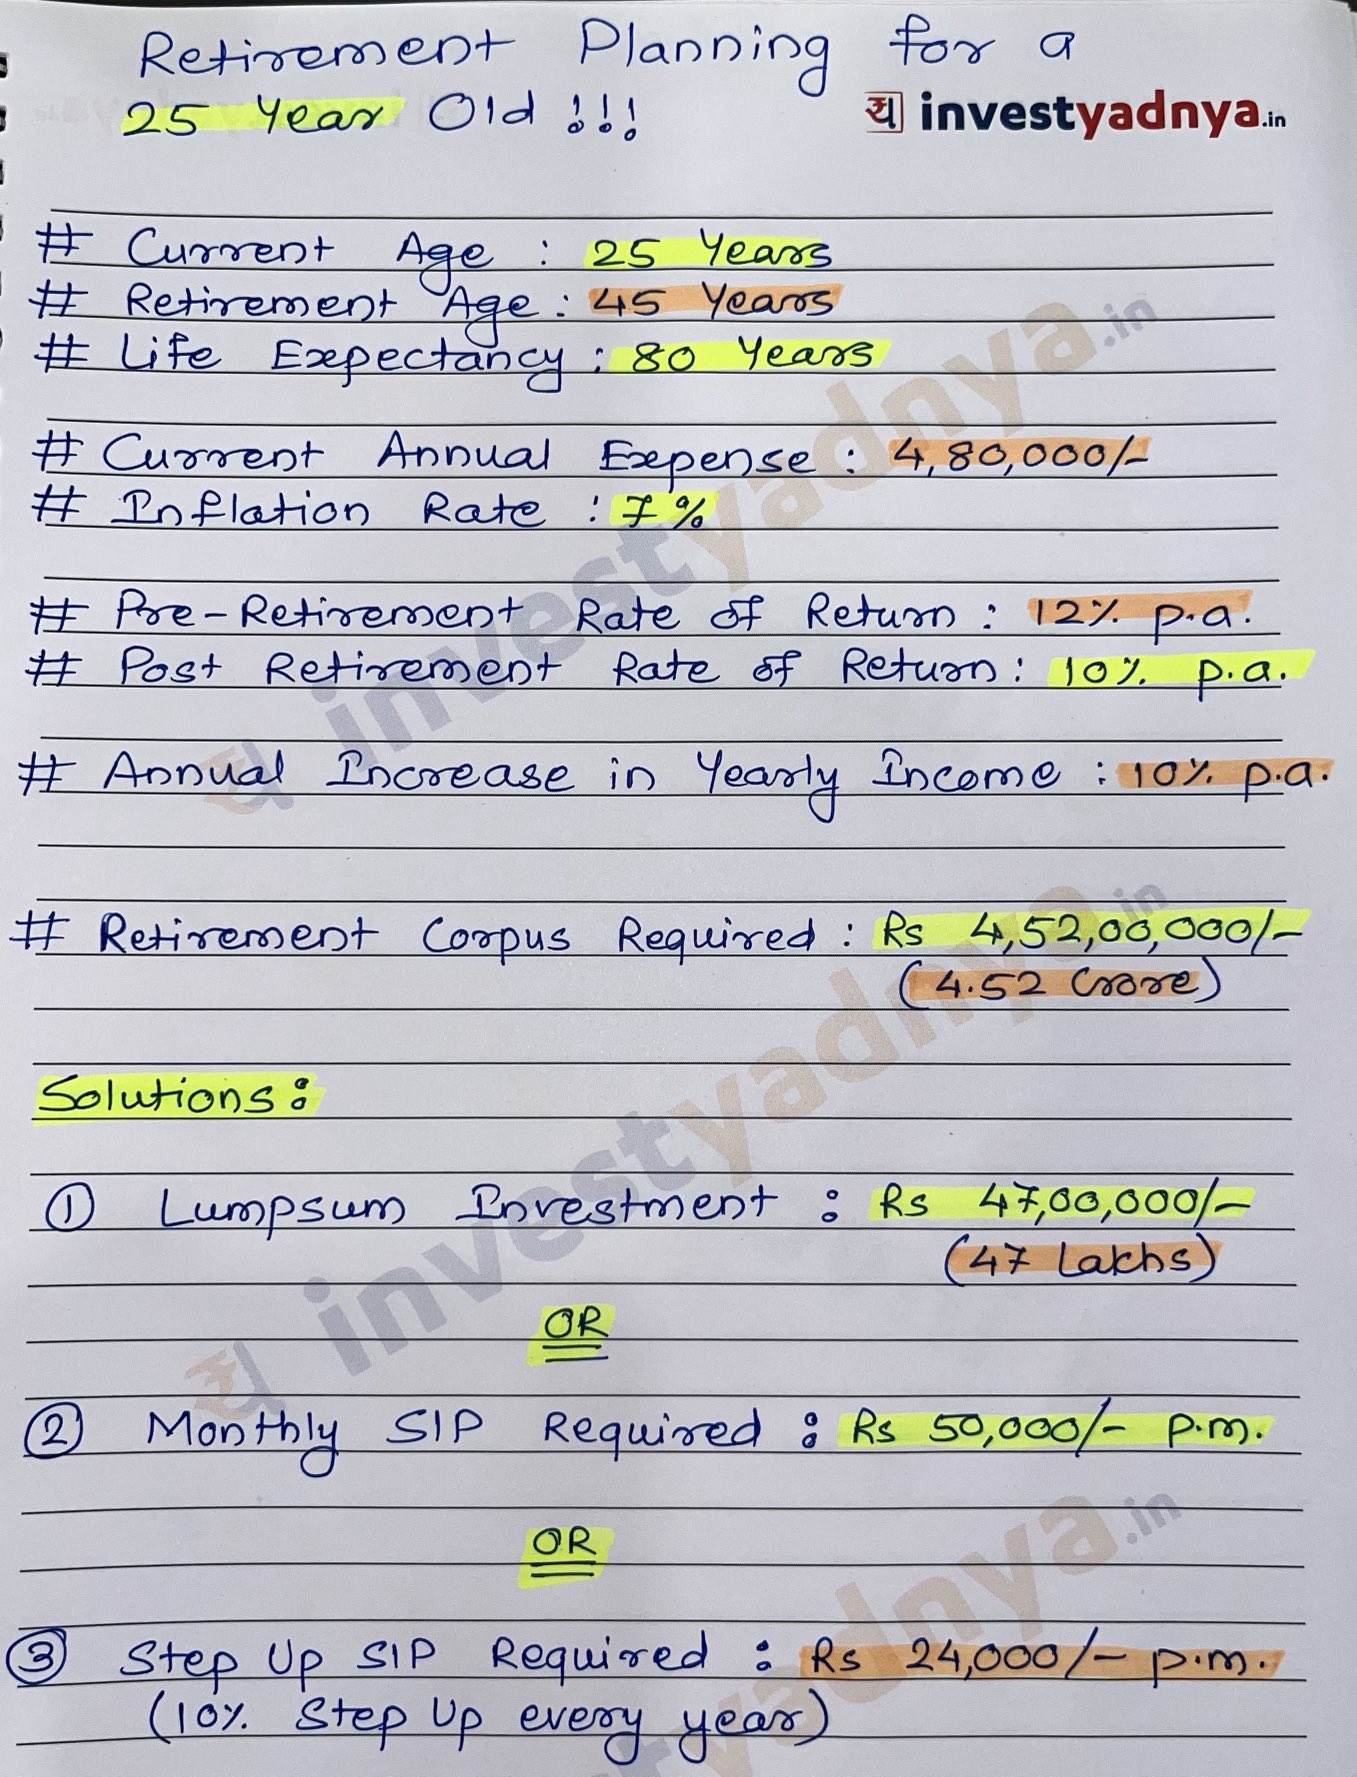 Retirement Planning for a
25 Year Old !!!
investyadnya.in
# Current Age : 25 Years
# Retirement Age : 45 Years
# Life Expectancy : 80 Years
# Current Annual Expense : 4,80,000/-
# Inflation Rate : 7%
# Pre-Retirement Rate of Return : 12% p.a.
# Post Retirement Rate of Return : 10% p.a.
# Annual Increase in Yearly Income : 10% p.a.
# Retirement Corpus Required : Rs 4,52,00,000/-
(4.52 Crore)
Solutions :
① Lumpsum Investment : Rs 47,00,000/-
(47 Lakhs)
OR
② Monthly SIP Required : Rs 50,000/- p.m.
OR
③ Step Up SIP Required : Rs 24,000/- p.m.
(10% Step Up every year)
investyadnya.in
investyadnya.in
investyadnya.in